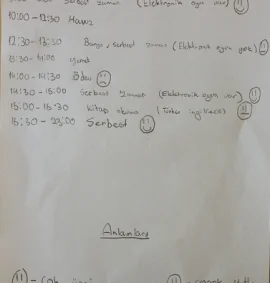 Serbest zaman (Elektronik oyun var)
10:00 - 12:30 Havuz
12:30 - 13:30 Banyo, Serbest zaman (Elektronik oyun yok)
13:30 - 14:00 Yemek
14:00 - 14:30 Ödev
14:30 - 15:00 Serbest Zaman (Elektronik oyun var)
15:00 - 15:30 Kitap okuma (Türkçe ingilizce)
15:30 - 23:00 Serbest
Anlamları